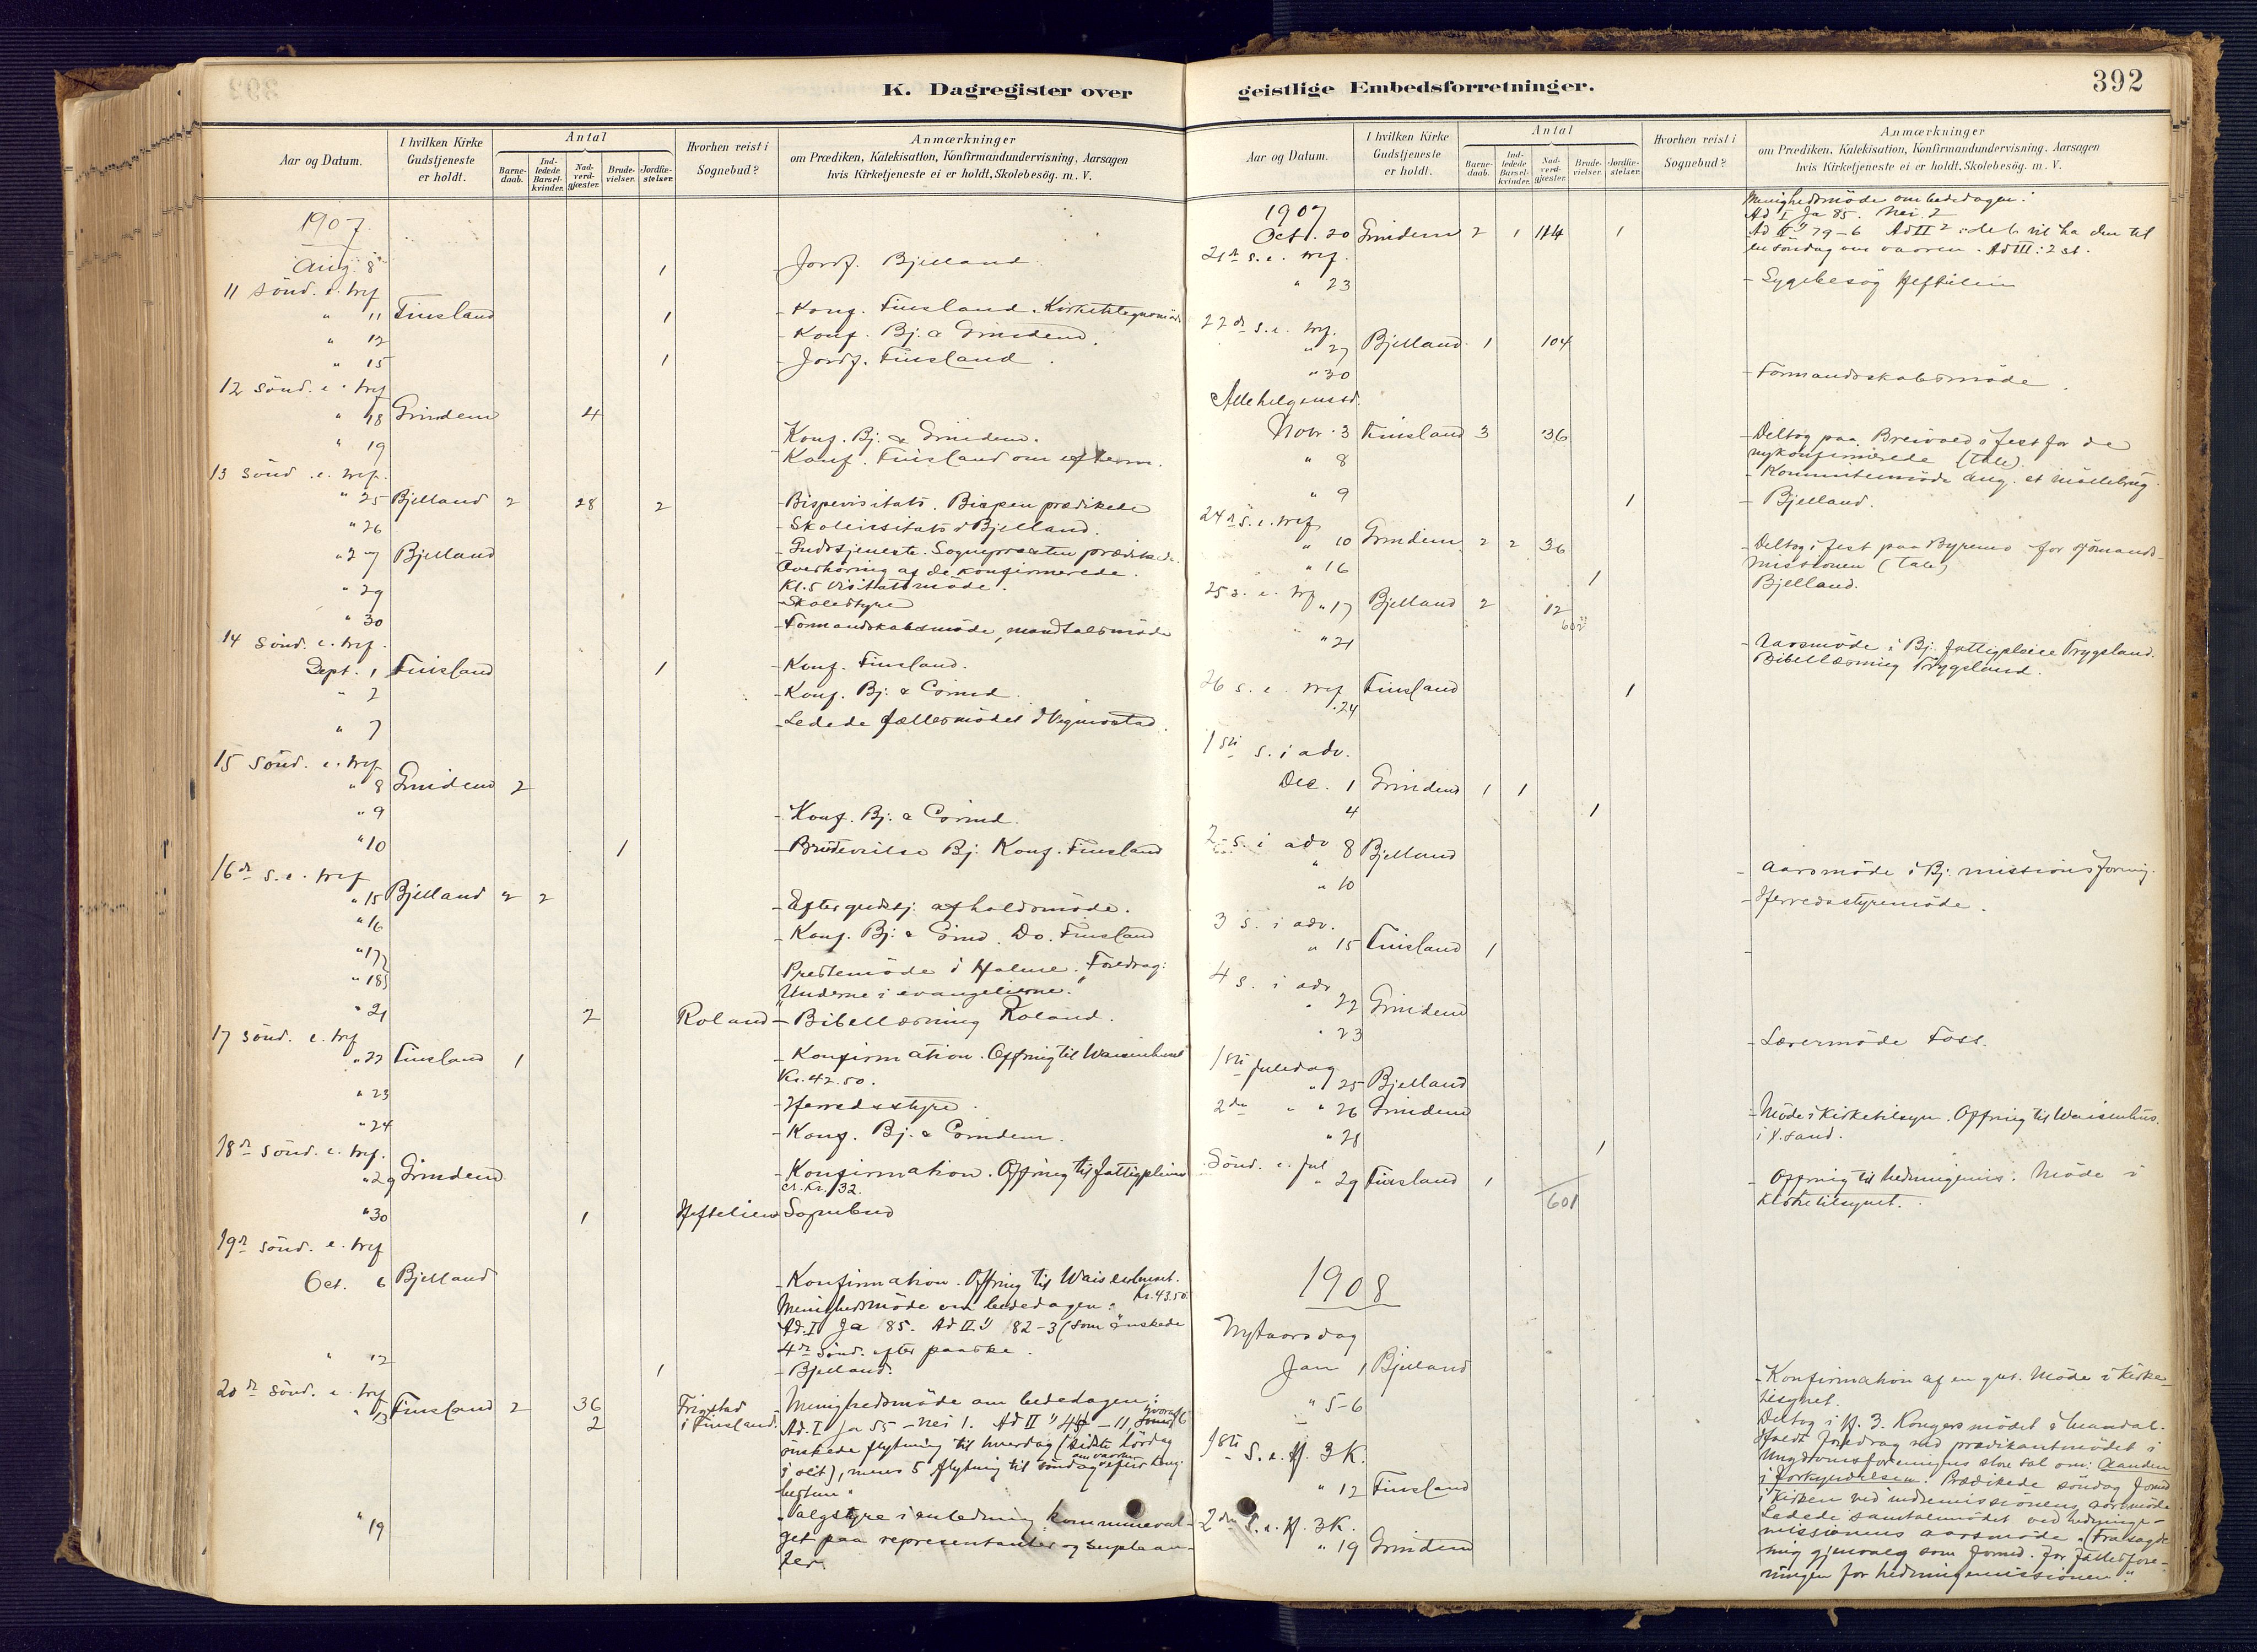 K. Dagregister over
Aar og Datum.
I hvilken Kirke Gudstjeneste er holdt.
Antal
Barne-daab.
Ind-ledede Barsel-kvinder.
Nad-verd-gjæster.
Brude-vielser.
Jordfæ-stelser.
Hvorhen reist i Sognebud?
Anmærkninger
om Prædiken, Katekisation, Konfirmandundervisning, Aarsagen
hvis Kirketjeneste ei er holdt, Skolebesög. m. V.
1907.
Aug. 8 1 Jordf. Bjelland
11 Sönd. e. tref
" 11 Finsland 1 - Konf. Finsland. Kirketilsynsmöde
" 12 - Konf. Bj. & Grindem.
" 15 1 - Jordf. Finsland.
12 Sönd. e. tref
" 18 Grindem 4
" 19 Konf. Bj. & Grindem.
Konf. Finsland om efterm.
13 Sönd. e. tref.
" 25 Bjelland 2 28 2 - Bispevisitats. Bispen prædikede
" 26 - Skolevisitats i Bjelland.
" 27 Bjelland - Gudstjeneste. Sognepræsten prædikede.
Overhöring af de konfirmerede.
Kl. 5 Visitatsmöde.
" 29 - Skolestyre
" 30 - Formandskabsmöde, mandtalsmöde
14 Sönd. e. tref.
Sept. 1 Finsland 1 - Konf. Finsland.
" 2 - Konf. Bj. & Grind.
" 7 - Ledede fællesmödet i Vigmostad.
15 Sönd. e. tref
" 8 Grindem 2
" 9 - Konf. Bj. & Grind.
" 10 1 - Brudevielse Bj. Konf. Finsland
16de s. e. tref
" 15 Bjelland 2 2 - Efter gudstj. afholdsmöde.
" 16 - Konf. Bj. & Grind. Do. Finsland
" 17
" 18 Prestemöde i Halme. Foredrag:
Underne i evangelierne."
" 21 2 Roland - Bibellæsning Roland.
17 Sönd. e. tref
" 22 Finsland 1 - Konfirmation. Offring til Waisenhuset
Kr. 42.50.
" 23 - Herredsstyre.
" 24 - Konf. Bj. & Grindem.
18de Sönd. e. tref.
" 29 Grindem - Konfirmation. Offring til fattigpleien
cr. Kr. 32.
" 30 1 Heftelien Sognebud
19de Sönd. e. tref
Oct. 6 Bjelland - Konfirmation. Offring til Waisenhuset.
Kr. 43.50.
Menighedsmöde om bededagen:
Ad. I Ja 85. Ad II " 82-3 (som önskede
4de Sönd. efter paaske.
" 12 1 - Bjelland.
20de Sönd. e. tref
" 13 Finsland 2 36 2 Frigstad i Finsland. - Menighedsmöde om bededagen:
Ad. I Ja 55 - nei 1. Ad II " 44 - 11, hvoraf 6
önskede flytning til hverdag (sidste lördag
i oct), mens 5 flytning til söndag om vaaren efter
" 19 - Valgstyre i anledning kommuneval-
get paa representanter og suplean-
ter.
geistlige Embedsforretninger.
392
Aar og Datum.
I hvilken Kirke Gudstjeneste er holdt.
Antal
Barne-daab.
Ind-ledede Barsel-kvinder.
Nad-verd-gjæster.
Brude-vielser.
Jordfæ-stelser.
Hvorhen reist i Sognebud?
Anmærkninger
om Prædiken, Katekisation, Konfirmandundervisning, Aarsagen
hvis Kirketjeneste ei er holdt, Skolebesög. m. V.
1907
Menighedsmöde om bededagen:
Ad I Ja 85. Nei 2
Oct. 20 Grindem 2 1 114 1 Ad II 79-6 Ad II 2: de 6 vil ha den til
en söndag om vaaren. Ad III: 2 st.
21de s. e. tref.
" 23 - Sygebesög Heftelien
22de s. e. tref.
" 27 Bjelland 1 104
" 30 - Formandsskabsmöde.
Allehelgenssd.
Nobr. 3 Finsland 3 36 - Deltog paa Breivold i fest for de
nykonfirmerede (tale).
" 8 - Kommitemöde ang. et möllebrug.
" 9 1 - Bjelland.
24de s. e. tref
" 10 Grindem 2 2 36 - Deltog i fest paa Byremo for sjömands-
missionen (tale)
" 16 1 Bjelland.
25 s. e. tref
" 17 Bjelland 2 12
602
" 21 - Aarsmöde i Bj. fattigpleie Trygsland.
Bibellæsning Trygsland.
26 s. e. tref Finsland 1
" 24
1ste s. i adv.
Dec. 1 Grindem 1 1
4 1
2 s. i adv 8 Bjelland - Aarsmöde i Bj. missionsforening.
" 10 - Herredsstyremöde.
3 s. i adv.
" 15 Finsland 1 -
4 s. i adv
" 22 Grindem
" 23 - Lærermöde Foss.
1ste juledag
" 25 Bjelland
2den " " 26 Grindem - Möde i kirketilsyn. Offring til Waisenhus.
i X.sand.
" 28 1
Sönd. e. jul
" 29 Finsland 1 601 - Offring til hedningemis. Möde i
kirketilsynet.
1908
Nytaarsdag
Jan 1 Bjelland - Konfirmation af en gut. Möde i kirke-
tilsynet.
" 5-6 Deltog i H. 3. Kongers mödet i Mandal.
Holdt foredrag ved prædikantmödet i
Ungdomsforeningens store sal om: Aanden
i forkyndelsen. Prædikede söndag formd
i kirken ved indremissionens aarsmöde
Ledede samtalemödet ved hedninge-
missionens aarsmöde. (Frasagde
mig gjenvalg som formd. for fællesfore-
ningen for hedningemissionen".
1ste S. e. H. 3 K.
" 12 Finsland
2den S. e. H. 3 K.
" 19 Grindem